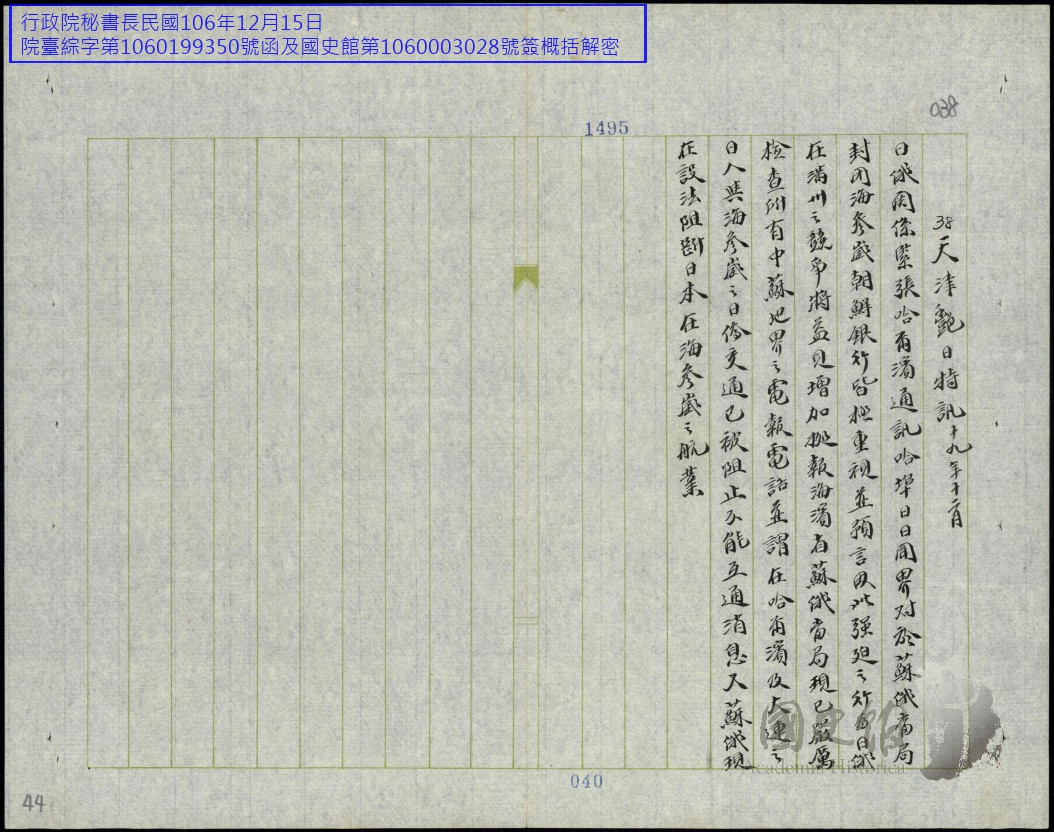 行政院秘書長民國106年12月15日
院臺綜字第1060199350號函及國史館第1060003028號簽概括解密
038
1495
38天津豔日特訊十九年十二月
日俄關係緊張哈爾濱通訊哈埠日日聞界对於蘇俄當局
封閉海參崴朝鮮銀行皆极重視並預言因此强廹之行为日俄
在滿州之競爭將益見增加據報海濱省蘇俄當局現已嚴厲
檢查所有中蘇地界之電報電話並謂在哈爾濱及大連之
日人與海參崴之日僑交通已被阻止不能互通消息又蘇俄現
在設法阻斷日本在海參崴之航業
國史館
Academia Historica
040
44